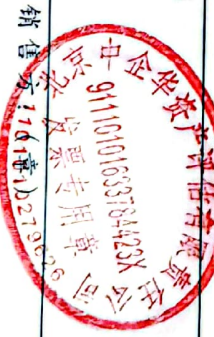 北京中企华资产评估有限责任公司
91110101633784423X
发票专用章
销售方：（章）